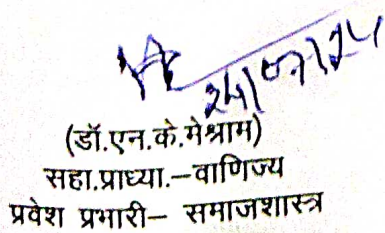 24/07/24
(डॉ.एन.के.मेश्राम)
सहा.प्राध्या.–वाणिज्य
प्रवेश प्रभारी– समाजशास्त्र